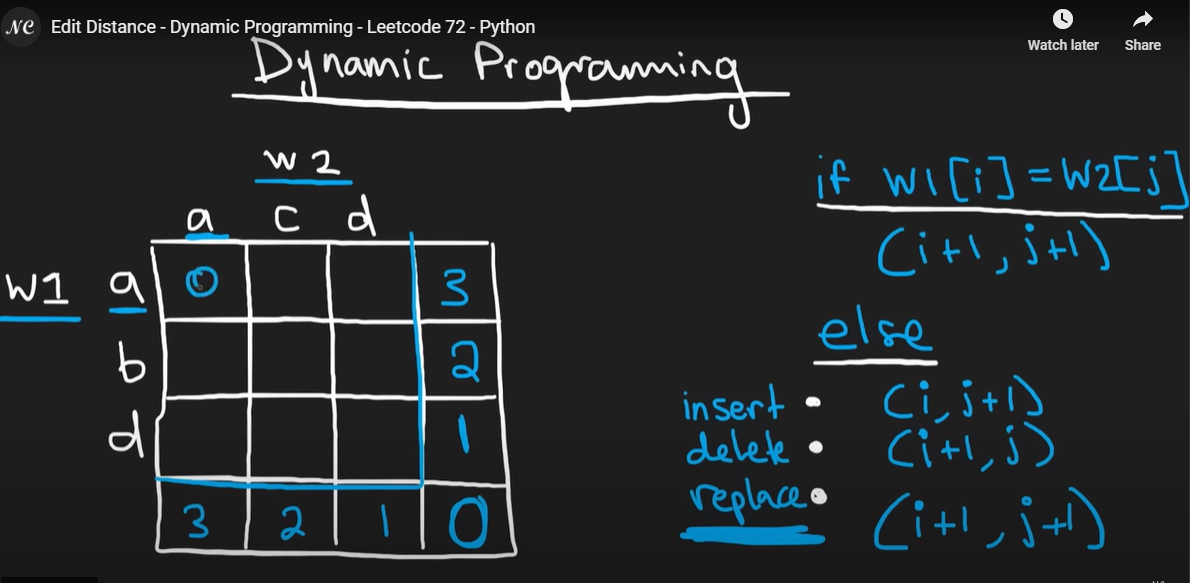 NC Edit Distance - Dynamic Programming - Leetcode 72 - Python
Watch later Share
Dynamic Programming
w2
a c d
W1 a 0 3
b 2
d 1
3 2 1 0
if W1[i]=W2[j]
(i+1, j+1)
else
insert • (i, j+1)
delete • (i+1, j)
replace • (i+1, j+1)